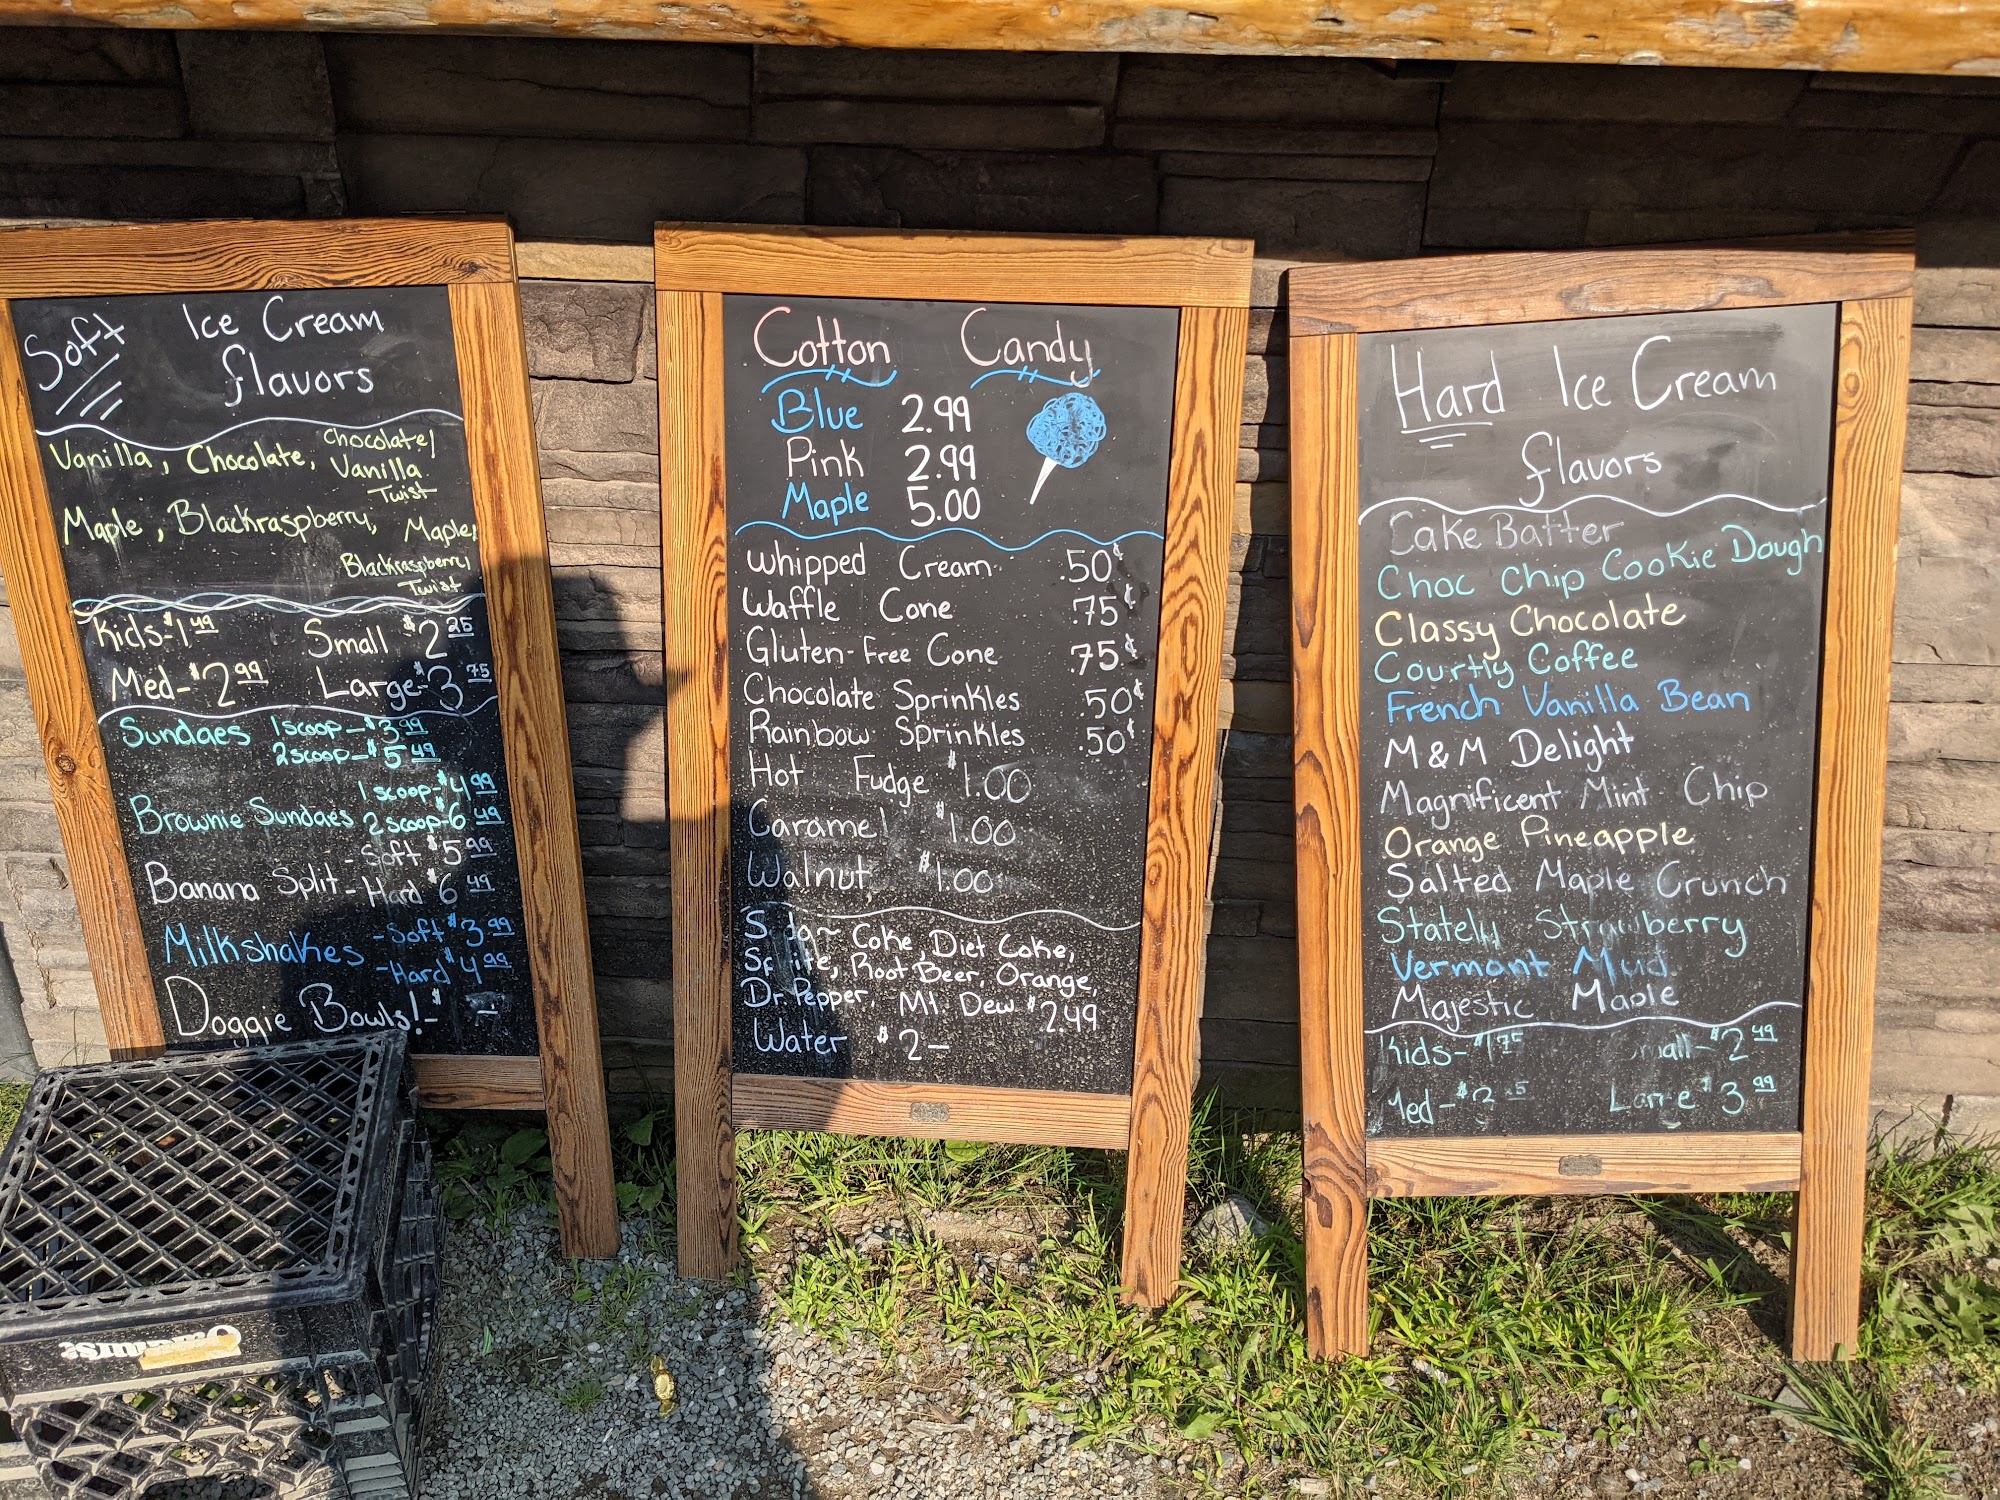 Soft Ice Cream
flavors
Vanilla, Chocolate, Chocolate/
Vanilla
Twist
Maple, Blackraspberry, Maple/
Blackraspberry
Twist
Kids-$1 49 Small $2 25
Med-$2 99 Large-$3 75
Sundaes 1 scoop-$3 99
2 scoop-$5 49
1 scoop-$4 99
Brownie Sundaes 2 scoop-$6 49
-Soft $5 99
Banana Split-Hard $6 49
Milkshakes -Soft $3 99
-Hard $4 99
Doggie Bowls!-$
Cotton Candy
Blue 2.99
Pink 2.99
Maple 5.00
Whipped Cream .50¢
Waffle Cone .75¢
Gluten-Free Cone .75¢
Chocolate Sprinkles .50¢
Rainbow Sprinkles .50¢
Hot Fudge $1.00
Caramel $1.00
Walnut $1.00
Coke, Diet Coke,
Root Beer, Orange,
Dr. Pepper, Mt. Dew $2.49
Water $2-
Hard Ice Cream
flavors
Cake Batter
Choc Chip Cookie Dough
Classy Chocolate
Courtly Coffee
French Vanilla Bean
M&M Delight
Magnificent Mint Chip
Orange Pineapple
Salted Maple Crunch
Stately Strawberry
Vermont Mud
Majestic Maple
Kids- $2 49
Large $3 99